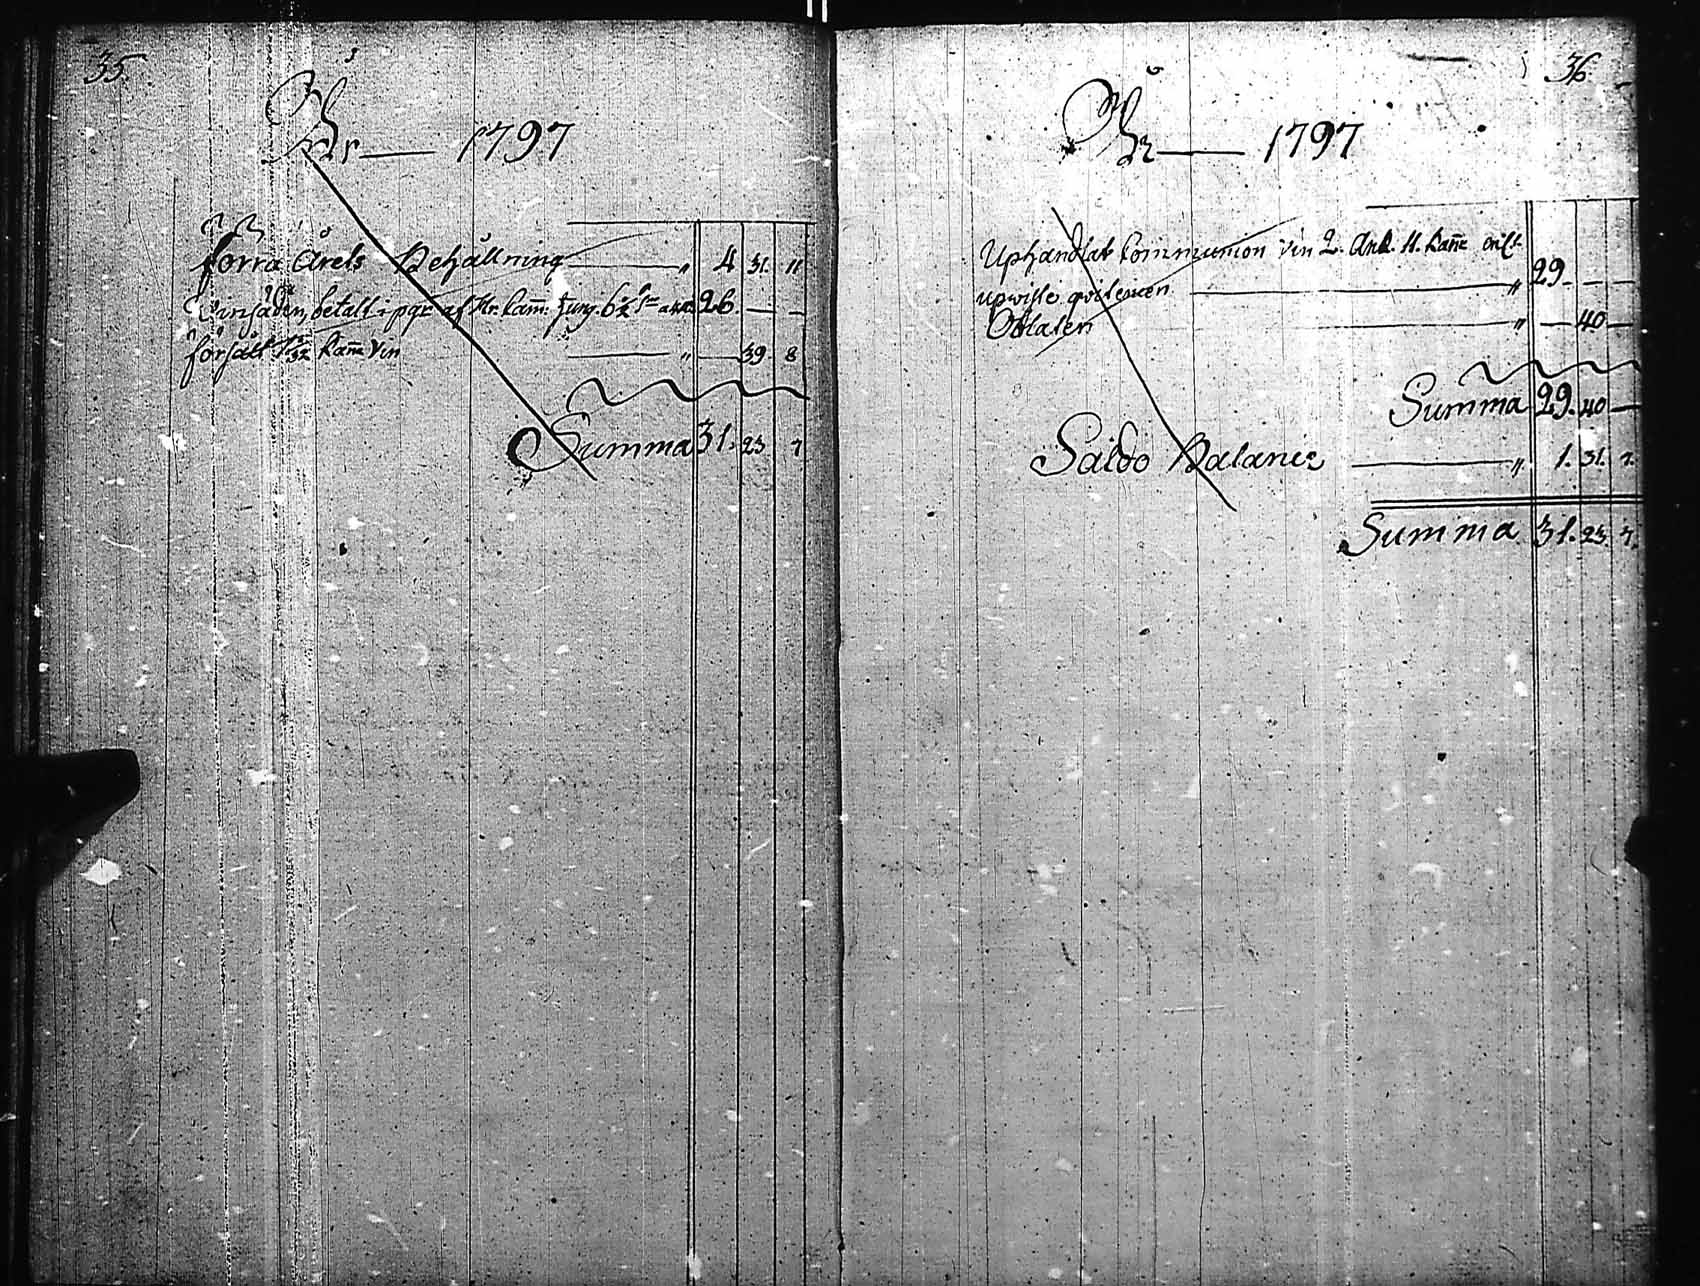 35
År — 1797
förra Årets Behållning — " 4 31. 11
Vinsäden, betalt i pgr af Hr. Kam: Ljung. 26. — —
försålt Kañe Vin — " — 39 8
Summa 31. 23 7
36
År — 1797
Uphandlat Communion Vin 2. Ank. 11. Kañe enl:t
upwiste qvitencen — " 29. — —
Oblaten — " — 40 —
Summa 29. 40 —
Saldo Balance — " 1. 31. 7.
Summa 31. 23. 7.